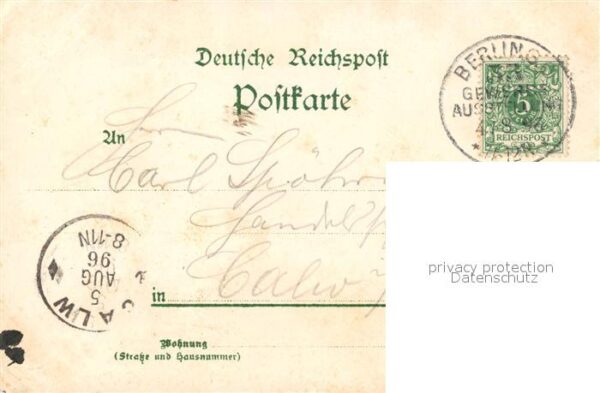 Deutsche Reichspost
Postkarte
BERLIN
GEW
AUSST
4 8
5
REICHSPOST
An
Herrn
Carl
Handel
in Calw
CALW
5
AUG
96
8-11N
privacy protection
Datenschutz
Wohnung
(Straße und Hausnummer)